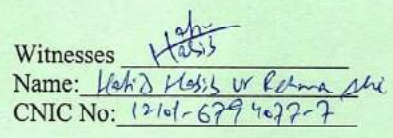 Witnesses Habib
Name: Hafiz Habib ur Rehma
CNIC No: 12101-6794077-7